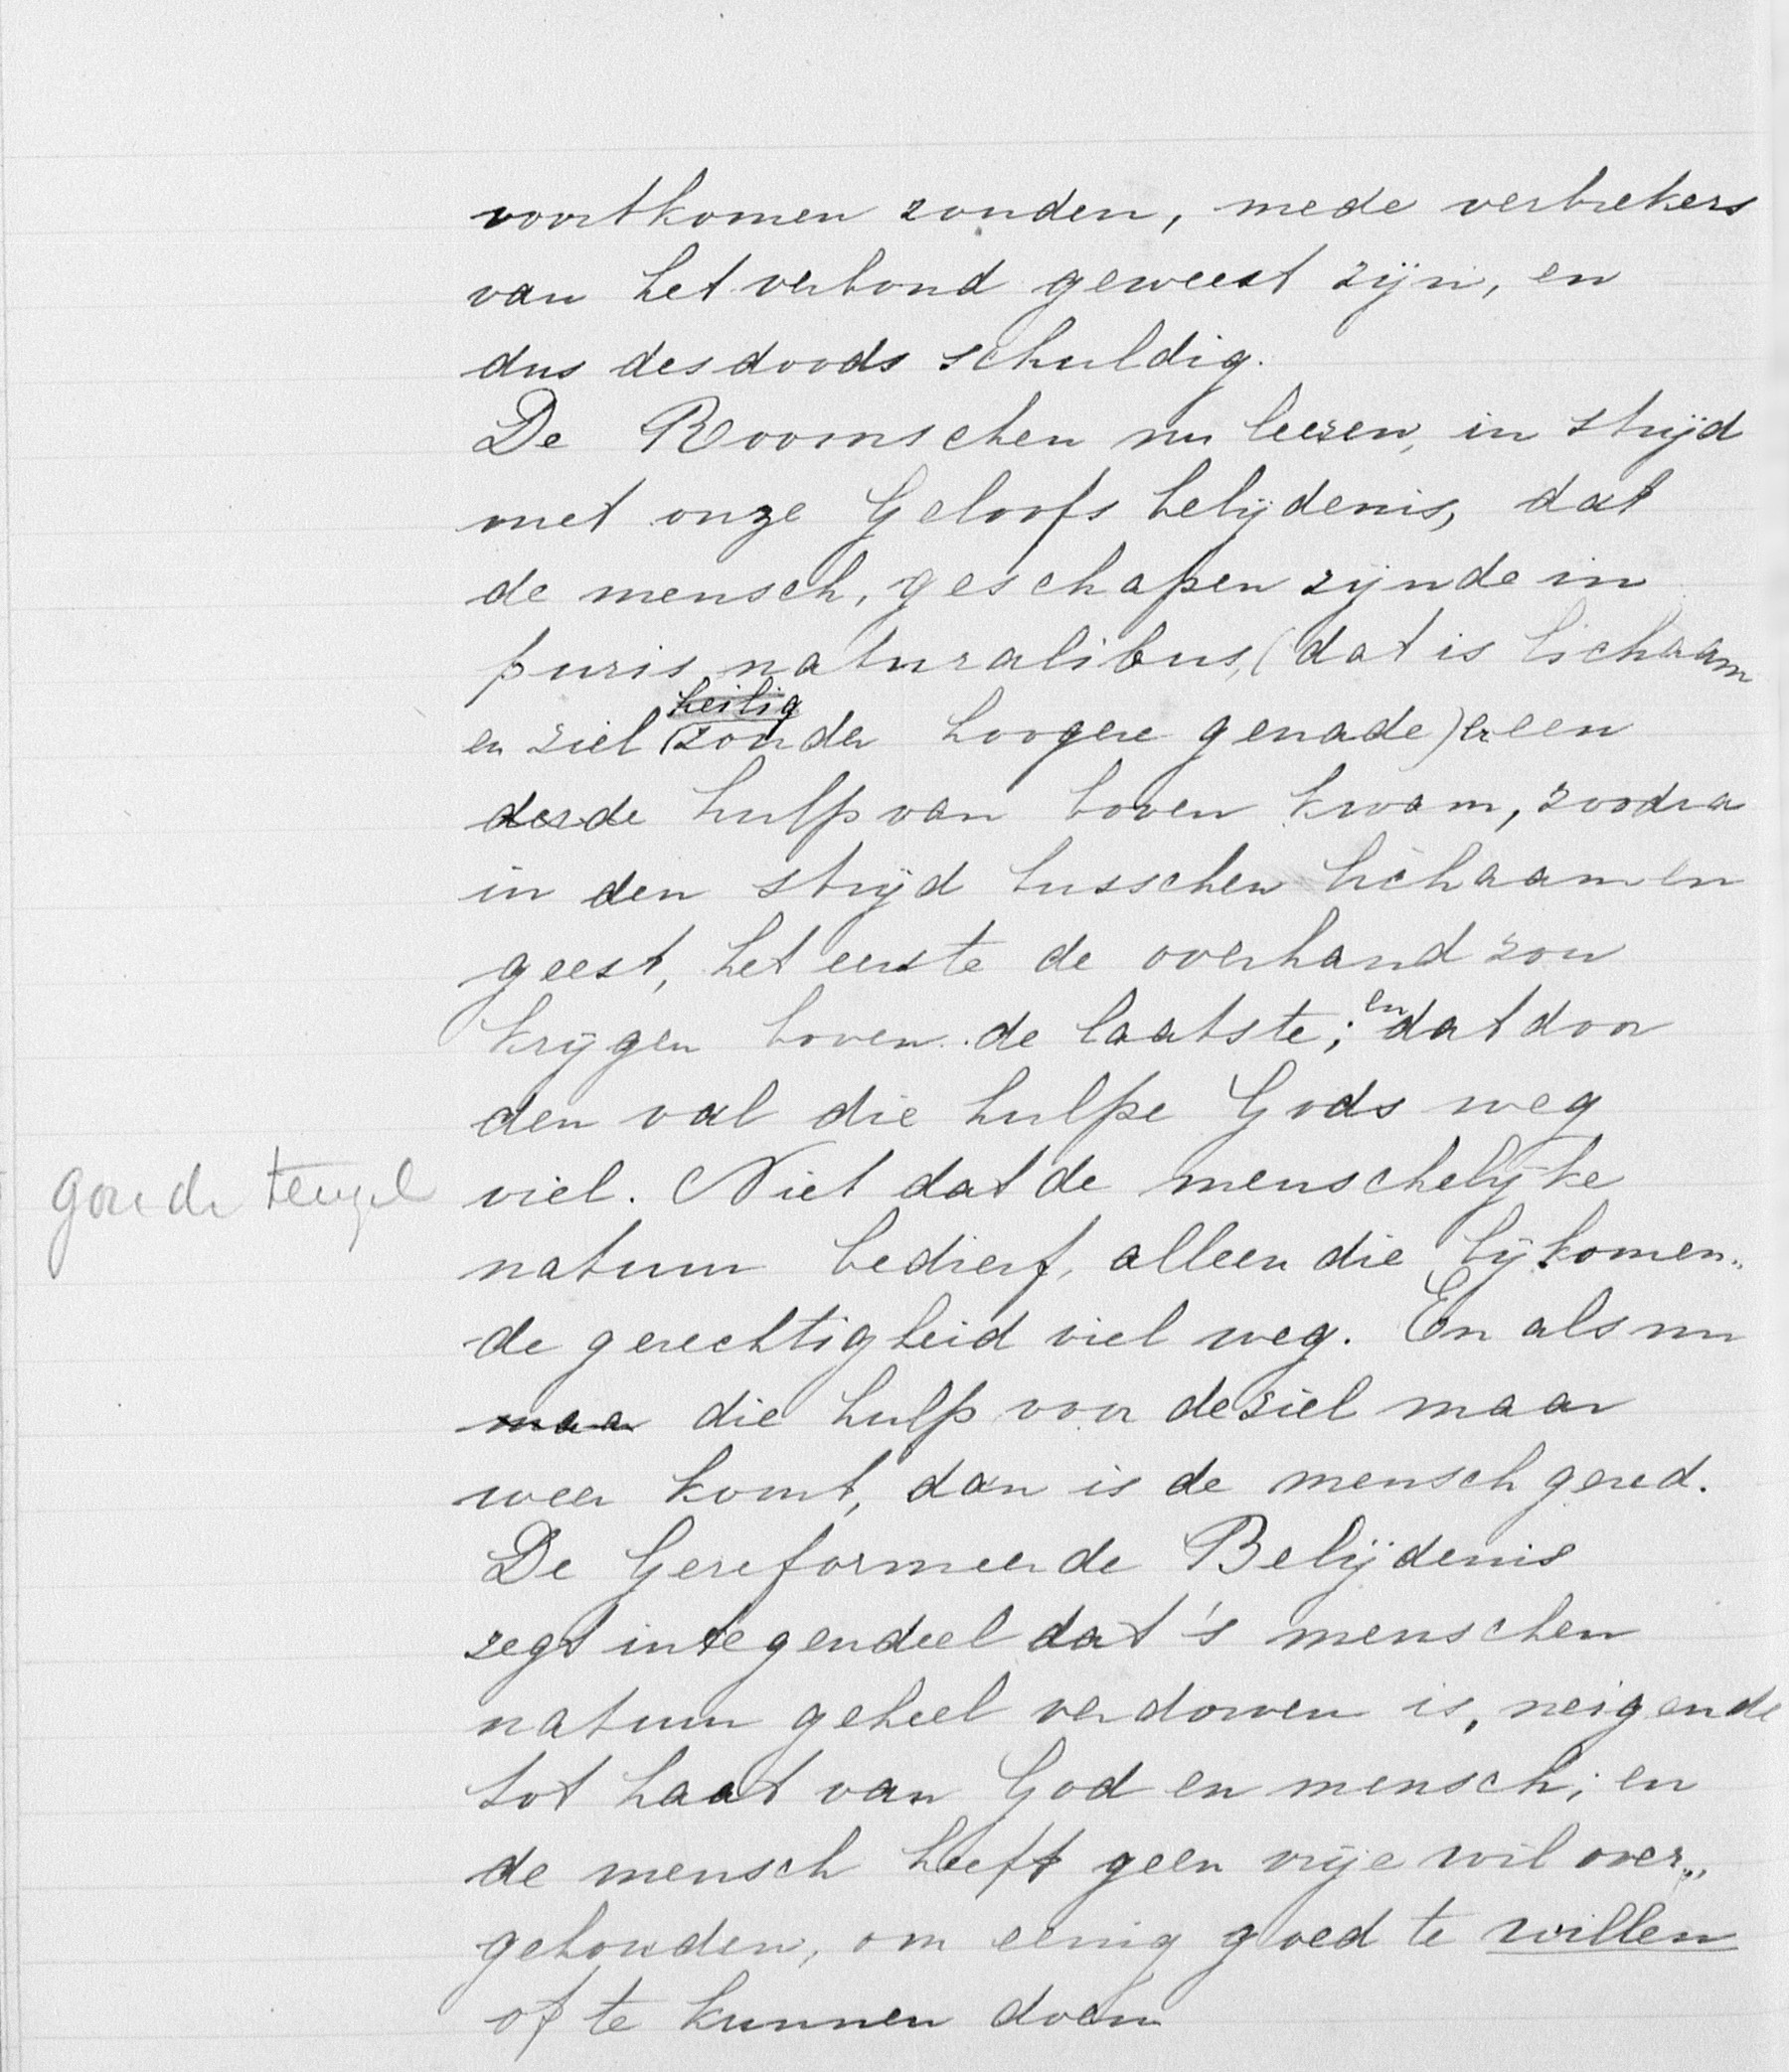 voortkomen zonden, mede verbrekers
van het verbond geweest zijn, en
dus des doods schuldig.
De Roomschen nu leeren, in strijd
met onze Geloofs belijdenis, dat
de mensch, geschapen zijnde in
puris naturalibus, (dat is lichaam
heilig
en ziel (zonder hoogere genade) er een
derde hulp van boven kwam, zoodra
in den strijd tusschen lichaam en
geest, het eerste de overhand zou
krijgen boven de laatste; en dat door
den val die hulpe Gods weg
goude teugel
viel. Niet dat de menschelijke
natuur bedierf, alleen die bijkomen„
de gerechtigheid viel weg. En als nu
maa die hulp voor de ziel maar
weer komt, dan is de mensch gered.
De Gereformeerde Belijdenis
zegt integendeel dat 's menschen
natuur geheel verdorven is, neigende
tot haat van God en mensch; en
de mensch heeft geen vrije wil over„
gehouden, om eenig goed te willen
of te kunnen doen